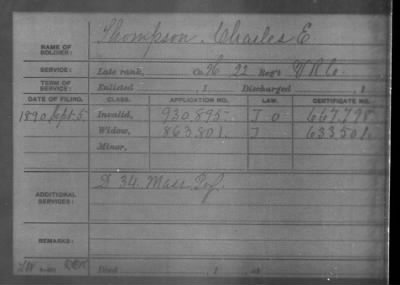 NAME OF SOLDIER: Thompson, Charles E
SERVICE: Late rank, Co. H 22 Reg't V.R.C.
TERM OF SERVICE: Enlisted , 1 Discharged , 1
DATE OF FILING. CLASS. APPLICATION NO. LAW. CERTIFICATE NO.
1890 Sept 5 Invalid, 930.895. J O 667.798
Widow, 863.801. J 633501.
Minor,
ADDITIONAL SERVICES: D 34 Mass Inf.
REMARKS:
Died , 1 , at